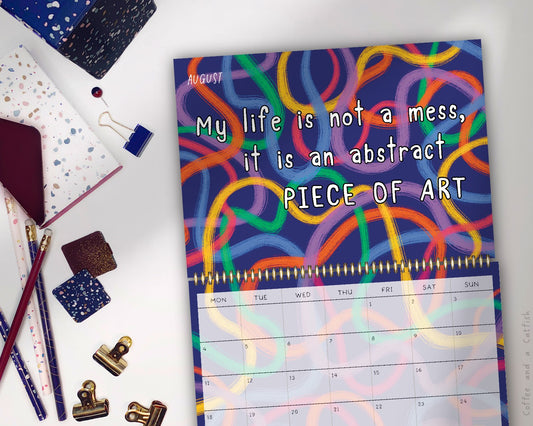 AUGUST
My life is not a mess,
it is an abstract
PIECE OF ART
MON TUE WED THU FRI SAT SUN
1 2 3
4 5 6 7 8 9 10
11 12 13 14 15 16 17
18 19 20 21 22 23 24
Coffee and a Catfish